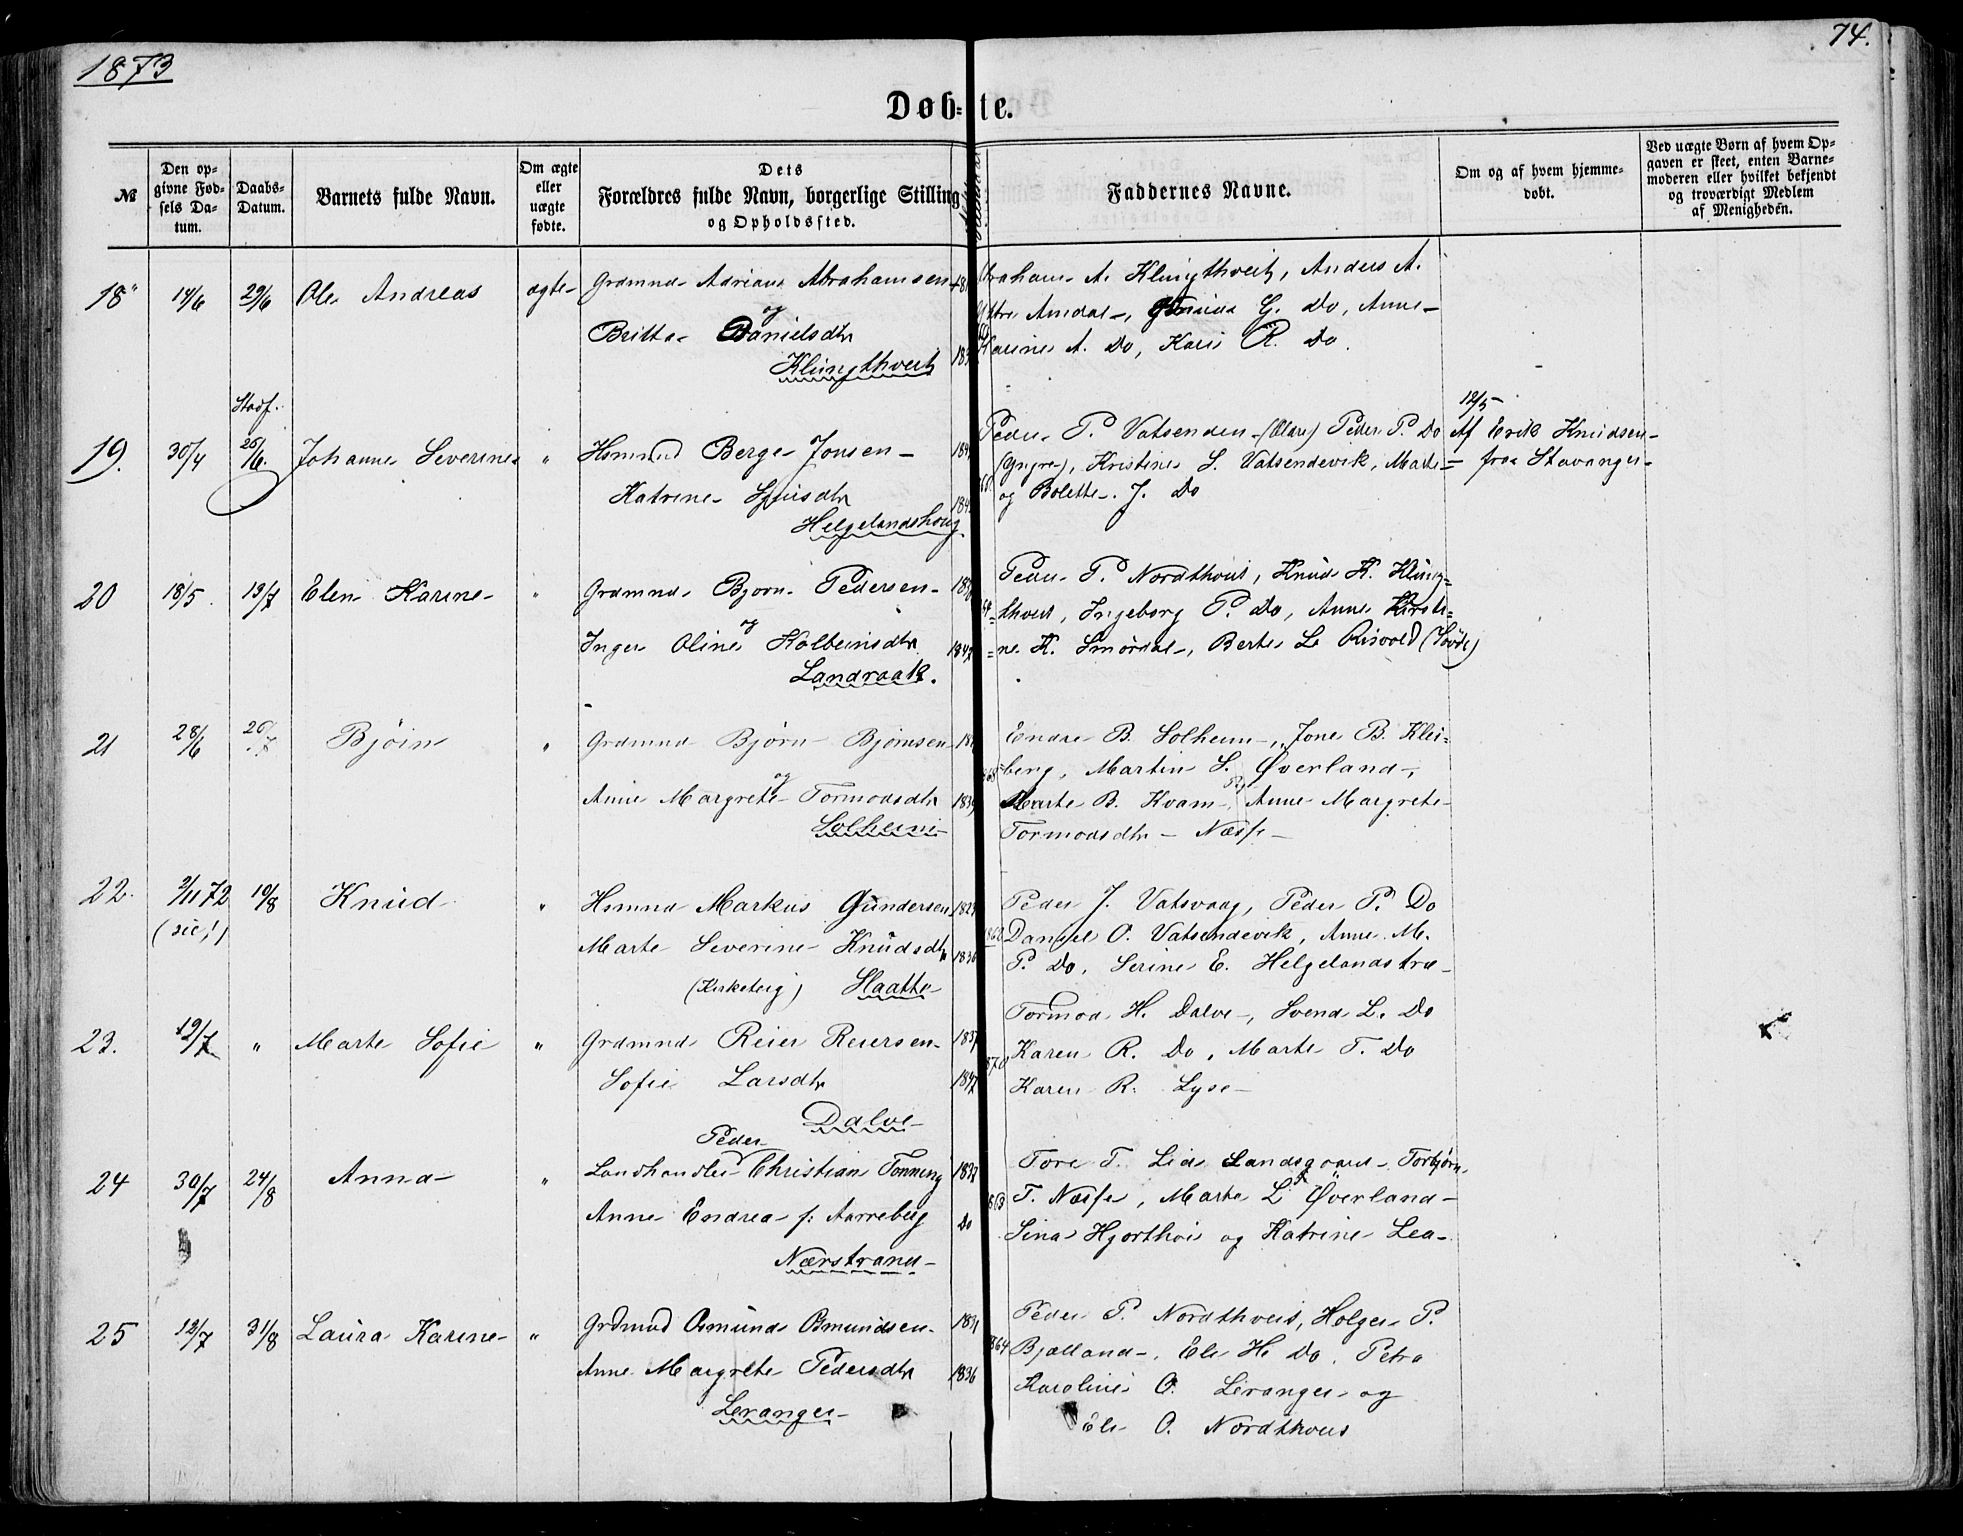 1873
74.
Døb-te.
№
Den op-
givne Fød-
sels Da-
tum.
Daabs-
Datum.
Barnets fulde Navn.
Om ægte
eller
uægte
fødte.
Dets
Forældres fulde Navn, borgerlige Stilling
og Opholdssted.
Faddernes Navne.
Om og af hvem hjemme-
døbt.
Ved uægte Børn af hvem Op-
gaven er skeet, enten Barne-
moderen eller hvilket bekjendt
og troværdigt Medlem
af Menigheden.
18 14/6 29/6 Ole Andreas ægte
Grdmnd Adrian Abrahamsen
og
Britta Danielsdtr
Klungthveit
A. Klungthveit, Anders A.
Amdal, G. Do, Anne
A. Do, Kari R. Do
19. 30/4 Stadf. 25/6. Johanne Severine "
Hsmnd Berge Jonsen
Katrine
Helgelandshoug
Peder P. Vatsenden (Ældre) Peder P. Do
(Yngre), Kristine S. Vatsendevik, Marte
og Bolette J. Do
12/5
Af Erik Knudsen
fra Stavanger
20 18/5 13/7 Elen Karine "
Grdmnd Bjørn Pedersen
og
Inger Oline Kolbeinsdtr 1842
Landraak.
Peder P. Nordthveit, Knud K. Klung-
thveit, Ingeborg P. Do, Anne Kirsti-
ne K. Smørdal, Berte L. Risvold
21 28/6 20/7 Bjørn "
Grdmnd Bjørn Bjørnsen
og
Anne Margrete Tormodsdtr 1839
Solheim
Endre B. Solheim, Jone B. Klei-
berg, Marten S. Øverland,
Marte B. Kvam, Anne Margrete
Tormodsdtr Næsse
22. 2/11 72 10/8 Knud "
(sic!)
Hsmnd Markus Gundersen
Marte Severine Knudsdtr 1836
(Kirketeig) Slaatte
Peder J. Vatsvaag, Peder P. Do
Daniel O. Vatsendevik, Anne M.
P. Do, Serine E. Helgelandstræ
23. 12/7 " Marte Sofie "
Grdmnd Reier Reiersen 1837
Sofie Larsdtr 1847
Dalve
Tormod H. Dalve, Svend L. Do
Karen R. Do, Marte T. Do
Karen R. Lyse
24 30/7 24/8 Anna "
Peder
Landhandler Christian Tonning 1837
Anne Endrea f: Aarreberg Do
Nærstrand
Tore T. Lid Landsgaard, Torbjørn
T. Næsse, Marte L. Øverland
Sina Hjorthoi og Katrine Lea
25 12/7 31/8 Laura Karine "
Grdmnd Osmund Osmundsen 1831
Anne Margrete Pedersdtr 1836
Leranger
Peder P. Nordthveit, Holger P.
Bjelland, Eli H. Do, Petra
Karoline O. Leranger og
Eli O. Nordthveit